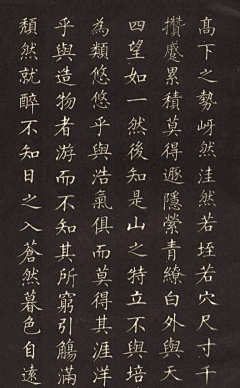 髙下之勢岈然洼然若垤若穴尺寸千
攢蹙累積莫得遯隱縈青繚白外與天
四望如一然後知是山之特立不與培
為類悠悠乎與浩氣俱而莫得其涯洋
乎與造物者游而不知其所窮引觴滿
頹然就醉不知日之入蒼然暮色自遠